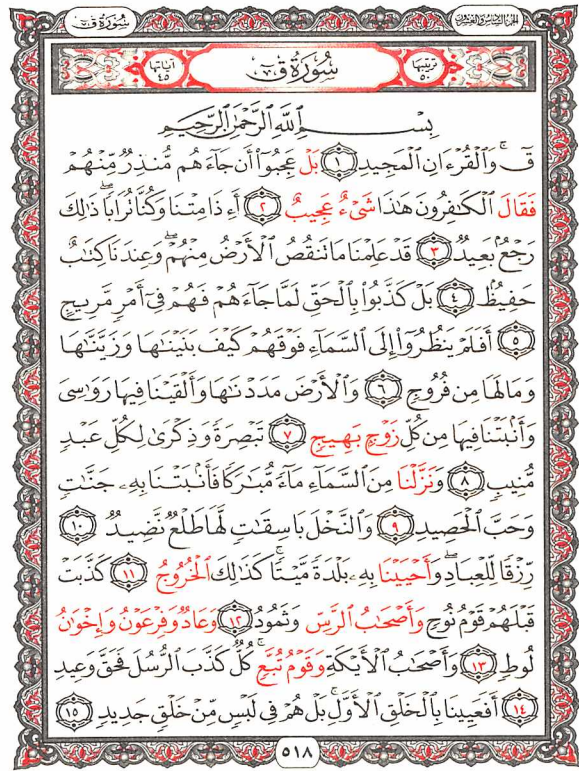 سُورَةُ قٓ
الجُزءُ السَّادِسُ وَالعِشرُونَ
ترتيبها ٥٠
سُورَةُ قٓ
آياتها ٤٥
بِسۡمِ ٱللَّهِ ٱلرَّحۡمَٰنِ ٱلرَّحِيمِ
قٓۚ وَٱلۡقُرۡءَانِ ٱلۡمَجِيدِ ١ بَلۡ عَجِبُوٓاْ أَن جَآءَهُم مُّنذِرٞ مِّنۡهُمۡ
فَقَالَ ٱلۡكَٰفِرُونَ هَٰذَا شَيۡءٌ عَجِيبٌ ٢ أَءِذَا مِتۡنَا وَكُنَّا تُرَابٗاۖ ذَٰلِكَ
رَجۡعُۢ بَعِيدٞ ٣ قَدۡ عَلِمۡنَا مَا تَنقُصُ ٱلۡأَرۡضُ مِنۡهُمۡۖ وَعِندَنَا كِتَٰبٌ
حَفِيظُۢ ٤ بَلۡ كَذَّبُواْ بِٱلۡحَقِّ لَمَّا جَآءَهُمۡ فَهُمۡ فِيٓ أَمۡرٖ مَّرِيجٍ
٥ أَفَلَمۡ يَنظُرُوٓاْ إِلَى ٱلسَّمَآءِ فَوۡقَهُمۡ كَيۡفَ بَنَيۡنَٰهَا وَزَيَّنَّٰهَا
وَمَا لَهَا مِن فُرُوجٖ ٦ وَٱلۡأَرۡضَ مَدَدۡنَٰهَا وَأَلۡقَيۡنَا فِيهَا رَوَٰسِيَ
وَأَنۢبَتۡنَا فِيهَا مِن كُلِّ زَوۡجِۭ بَهِيجٖ ٧ تَبۡصِرَةٗ وَذِكۡرَىٰ لِكُلِّ عَبۡدٖ
مُّنِيبٖ ٨ وَنَزَّلۡنَا مِنَ ٱلسَّمَآءِ مَآءٗ مُّبَٰرَكٗا فَأَنۢبَتۡنَا بِهِۦ جَنَّٰتٖ
وَحَبَّ ٱلۡحَصِيدِ ٩ وَٱلنَّخۡلَ بَاسِقَٰتٖ لَّهَا طَلۡعٞ نَّضِيدٞ ١٠
رِّزۡقٗا لِّلۡعِبَادِۖ وَأَحۡيَيۡنَا بِهِۦ بَلۡدَةٗ مَّيۡتٗاۚ كَذَٰلِكَ ٱلۡخُرُوجُ ١١ كَذَّبَتۡ
قَبۡلَهُمۡ قَوۡمُ نُوحٖ وَأَصۡحَٰبُ ٱلرَّسِّ وَثَمُودُ ١٢ وَعَادٞ وَفِرۡعَوۡنُ وَإِخۡوَٰنُ
لُوطٖ ١٣ وَأَصۡحَٰبُ ٱلۡأَيۡكَةِ وَقَوۡمُ تُبَّعٖۚ كُلّٞ كَذَّبَ ٱلرُّسُلَ فَحَقَّ وَعِيدِ
١٤ أَفَعَيِينَا بِٱلۡخَلۡقِ ٱلۡأَوَّلِۚ بَلۡ هُمۡ فِي لَبۡسٖ مِّنۡ خَلۡقٖ جَدِيدٖ ١٥
٥١٨